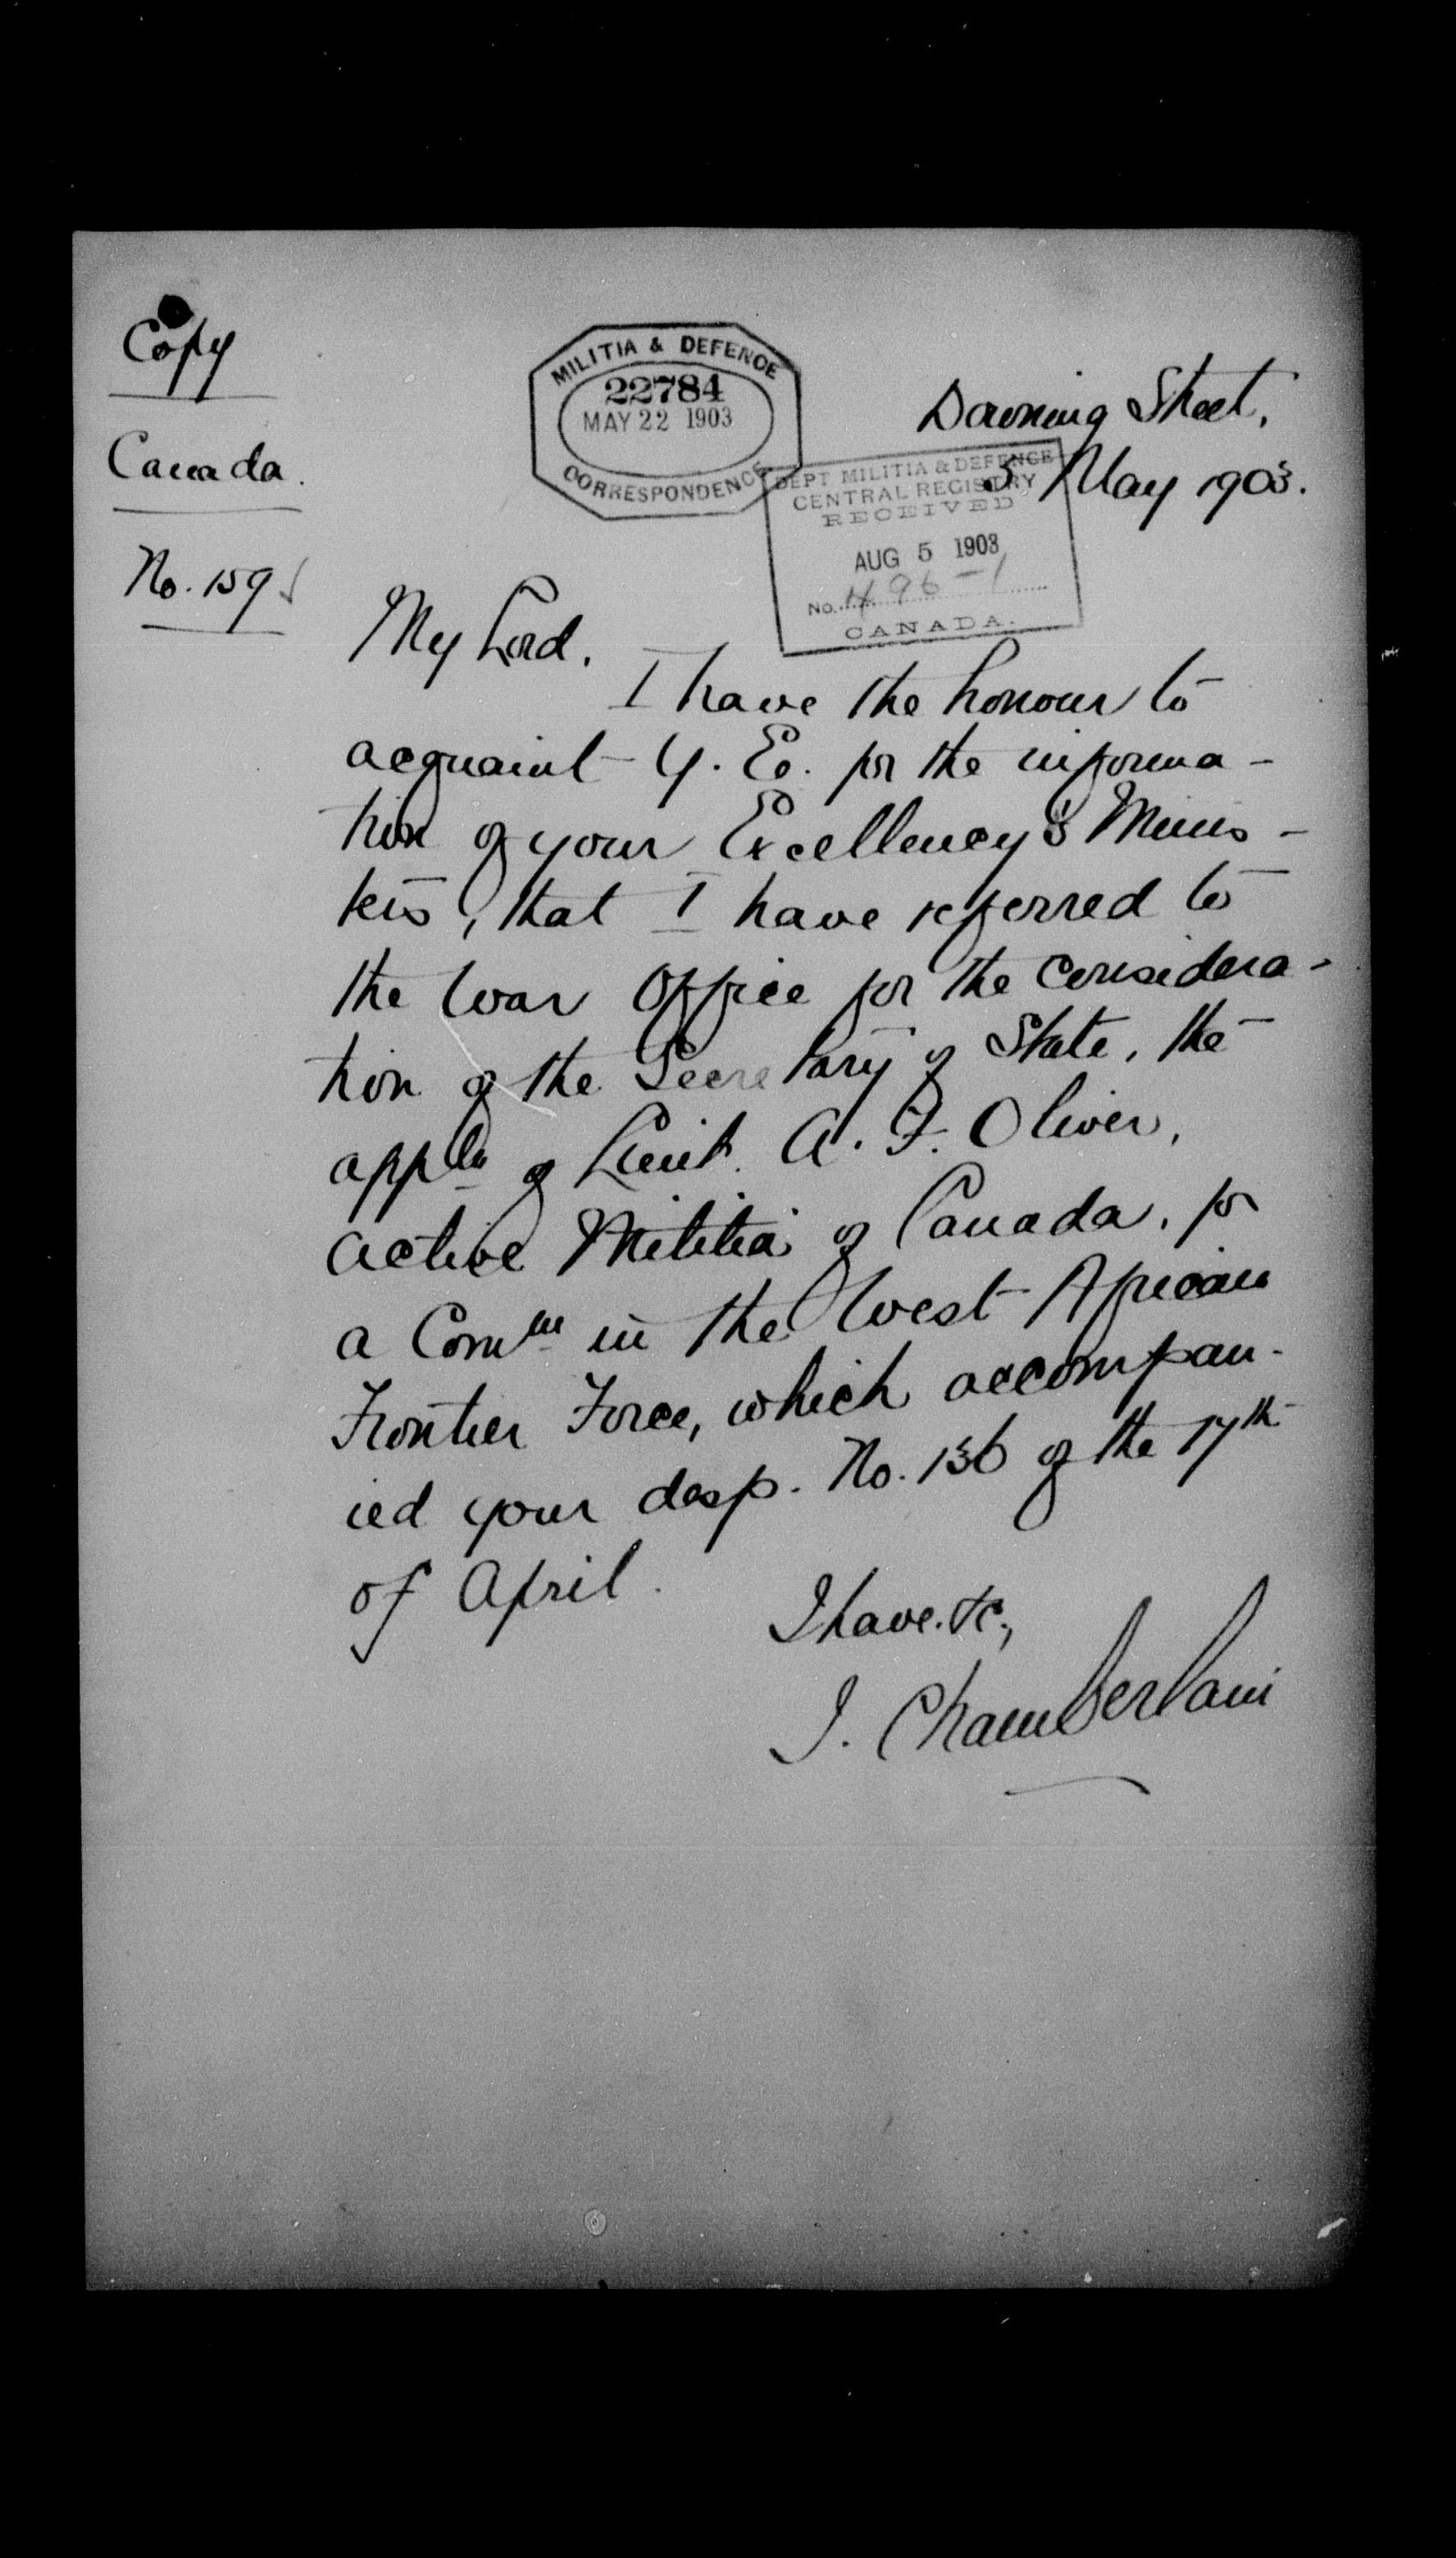 Copy
Canada.
No. 159
MILITIA & DEFENCE
22784
MAY 22 1903
CORRESPONDENCE
Downing Street,
5 May 1903.
DEPT MILITIA & DEFENCE
CENTRAL REGISTRY
RECEIVED
AUG 5 1903
No. 496-1
CANADA.
My Lord.
I have the honour to
acquaint Y. E. for the informa-
tion of your Excellency's Minis-
ters, that I have referred to
the War Office for the considera-
tion of the Secretary of State, the
appln of Lieut. A. F. Oliver,
active Militia of Canada, for
a Comn in the West African
Frontier Force, which accompan-
ied your desp. No. 136 of the 17th
of April.
I have &c,
J. Chamberlain